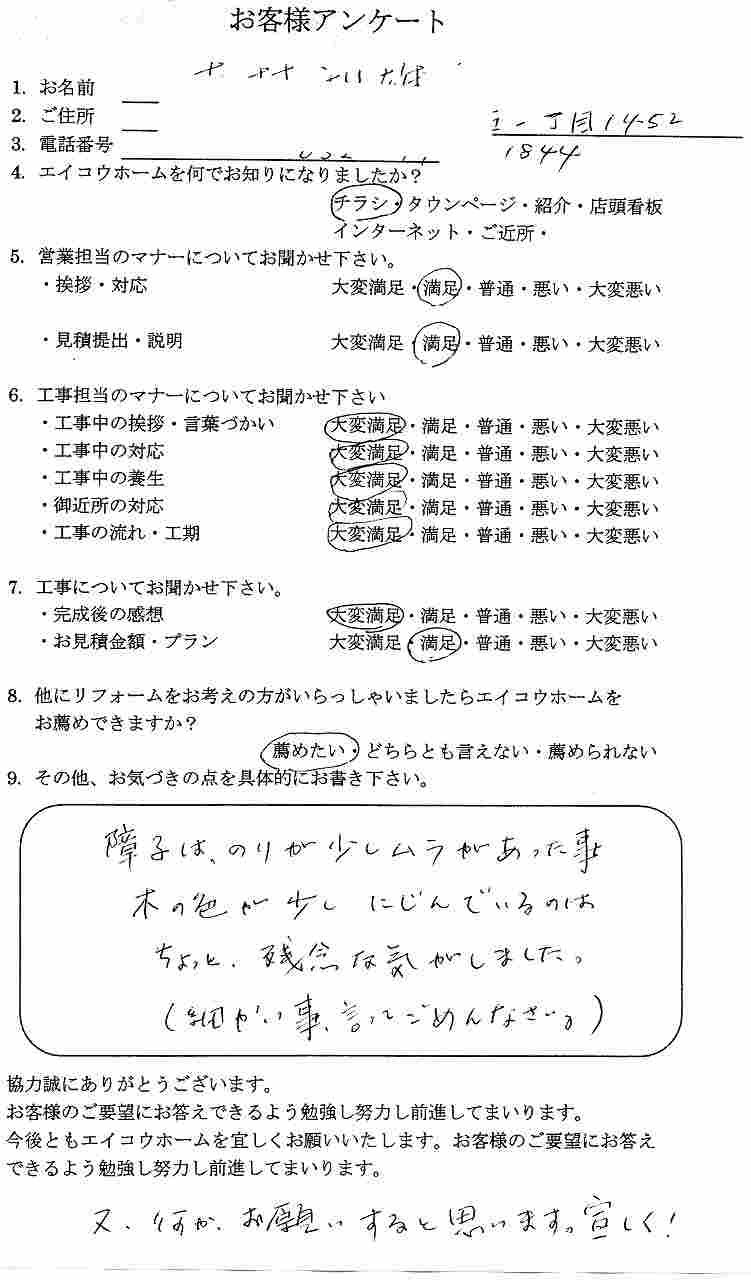 お客様アンケート
1. お名前
2. ご住所
一丁目14-52
3. 電話番号
1844
4. エイコウホームを何でお知りになりましたか?
チラシ・タウンページ・紹介・店頭看板
インターネット・ご近所・
5. 営業担当のマナーについてお聞かせ下さい。
・挨拶・対応 大変満足・満足・普通・悪い・大変悪い
・見積提出・説明 大変満足・満足・普通・悪い・大変悪い
6. 工事担当のマナーについてお聞かせ下さい
・工事中の挨拶・言葉づかい 大変満足・満足・普通・悪い・大変悪い
・工事中の対応 大変満足・満足・普通・悪い・大変悪い
・工事中の養生 大変満足・満足・普通・悪い・大変悪い
・御近所の対応 大変満足・満足・普通・悪い・大変悪い
・工事の流れ・工期 大変満足・満足・普通・悪い・大変悪い
7. 工事についてお聞かせ下さい。
・完成後の感想 大変満足・満足・普通・悪い・大変悪い
・お見積金額・プラン 大変満足・満足・普通・悪い・大変悪い
8. 他にリフォームをお考えの方がいらっしゃいましたらエイコウホームを
お薦めできますか?
薦めたい・どちらとも言えない・薦められない
9. その他、お気づきの点を具体的にお書き下さい。
障子は、のりが少しムラがあった事
木の色が少しにじんでいるのは
ちょっと、残念な気がしました。
(細かい事、言ってごめんなさい。)
協力誠にありがとうございます。
お客様のご要望にお答えできるよう勉強し努力し前進してまいります。
今後ともエイコウホームを宜しくお願いいたします。お客様のご要望にお答え
できるよう勉強し努力し前進してまいります。
又、何か、お願いすると思います。宜しく!